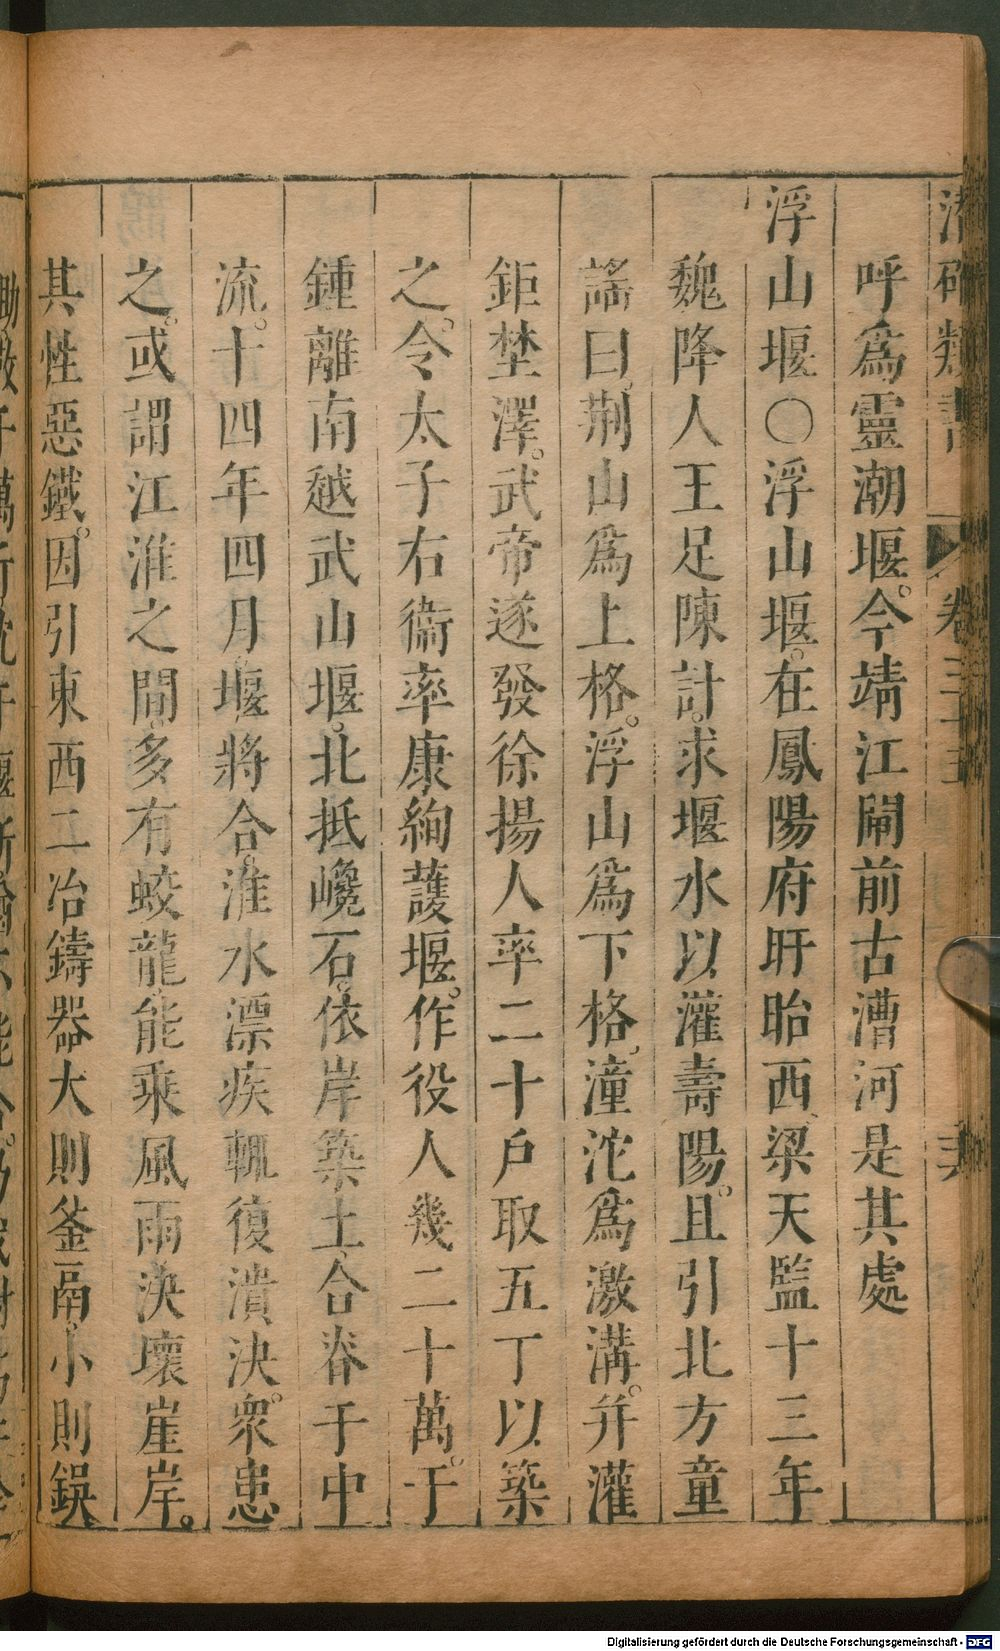 呼爲靈潮堰。今靖江閘前古漕河是其處
浮山堰〇浮山堰。在鳳陽府盱眙西、梁天監十三年
魏降人王足陳計。求堰水以灌壽陽。且引北方童
謠曰。荆山爲上格。浮山爲下格。潼沱爲激溝。并灌
鉅埜澤。武帝遂發徐揚人率二十戶取五丁以築
之。令太子右衞率康絢護堰。作役人幾二十萬。于
鍾離南越武山堰。北抵巉石。依岸築土、合脊于中
流。十四年四月堰將合。淮水漂疾輒復潰決。衆患
之。或謂江淮之間。多有蛟龍能乘風雨決壞崖岸。
其性惡鐵。因引東西二冶鑄器大則釜鬲、小則鋘
類書 卷三十
Digitalisierung gefördert durch die Deutsche Forschungsgemeinschaft - DFG